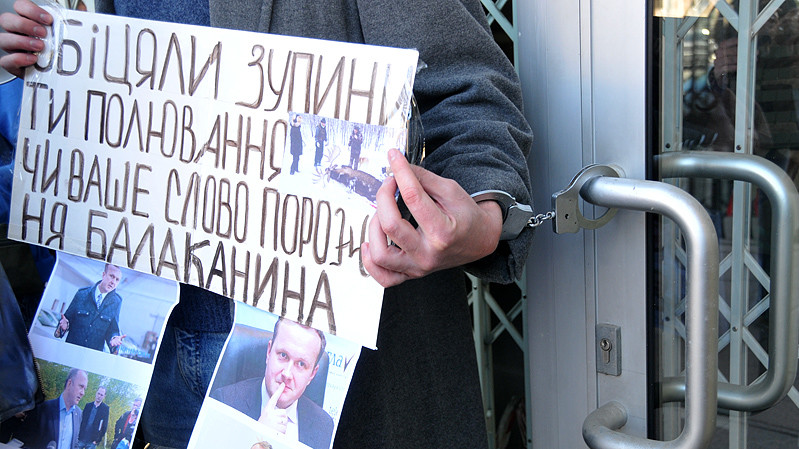 ОБІЦЯЛИ ЗУПИНИ
ТИ ПОЛЮВАННЯ
ЧИ ВАШЕ СЛОВО ПОРОЖ
НЯ БАЛАКАНИНА